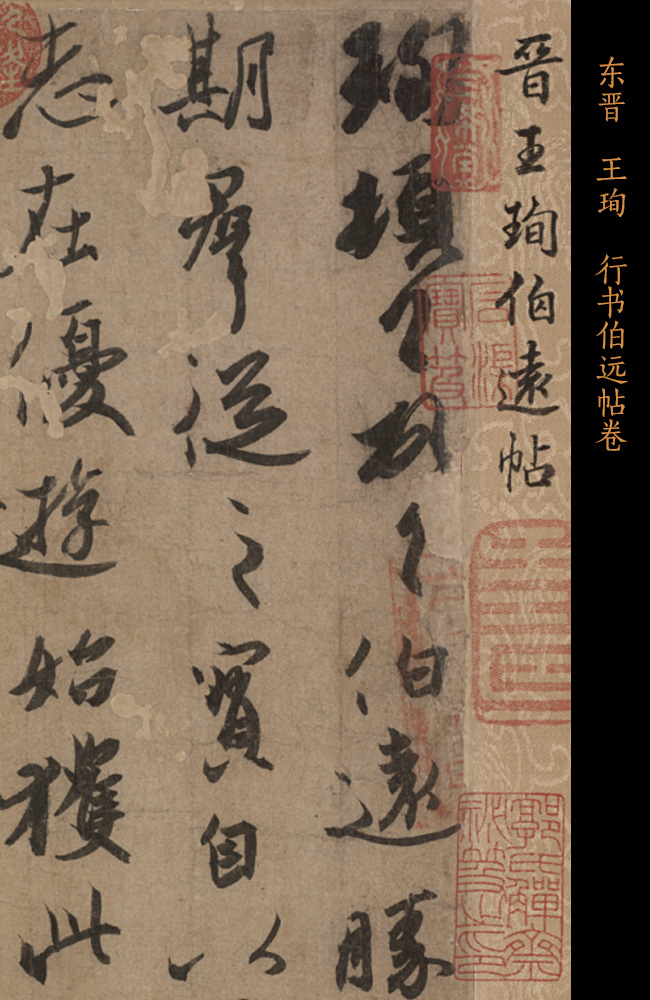 东晋 王珣 行书伯远帖卷
晉王珣伯遠帖
珣頓首頓首伯遠勝
期羣從之寶自以
志在優遊始獲此